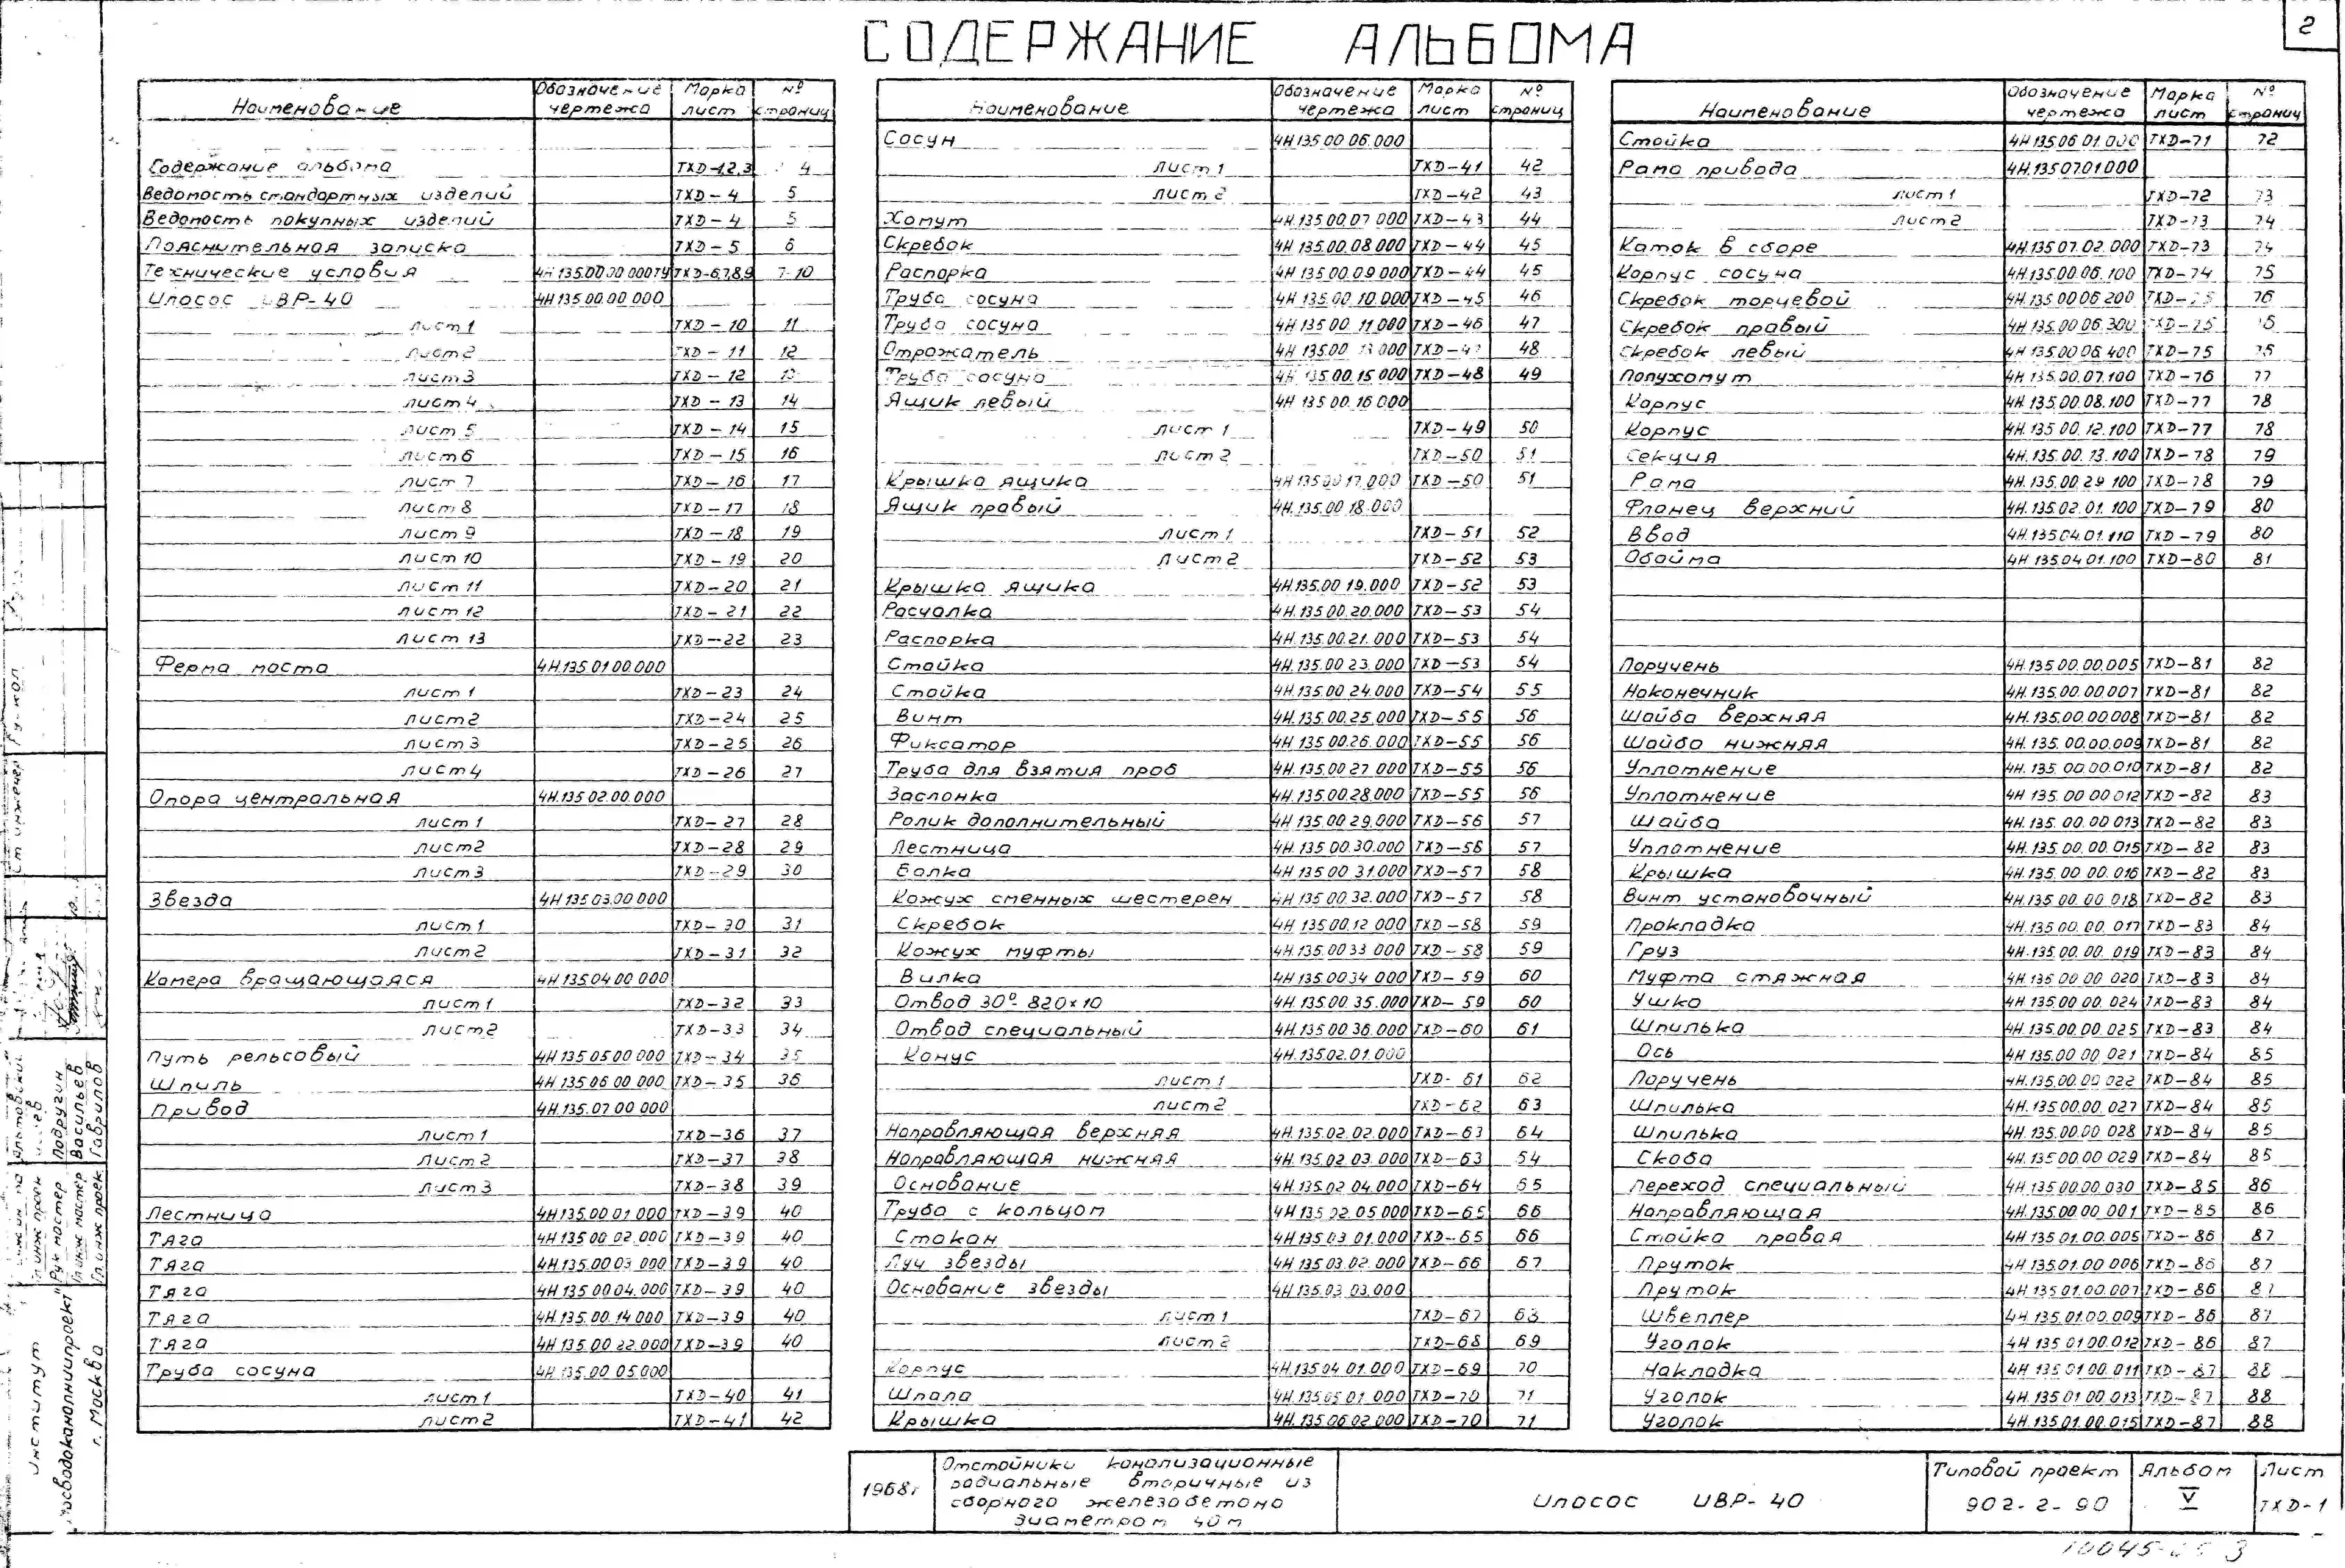 2
СОДЕРЖАНИЕ АЛЬБОМА
Наименование Обозначение чертежа Марка лист № страниц
Содержание альбома ТХД-1,2,3 4
Ведомость стандартных изделий ТХД-4 5
Ведомость покупных изделий ТХД-4 5
Пояснительная записка ТХД-5 6
Технические условия 4Н 135.00 00 000ТУ ТХД-6,7,8,9 7-10
Илосос ИВР-40 4Н 135.00.00.000
лист 1 ТХД-10 11
лист 2 ТХД-11 12
лист 3 ТХД-12
лист 4 ТХД-13 14
лист 5 ТХД-14 15
лист 6 ТХД-15 16
лист 7 ТХД-16 17
лист 8 ТХД-17 18
лист 9 ТХД-18 19
лист 10 ТХД-19 20
лист 11 ТХД-20 21
лист 12 ТХД-21 22
лист 13 ТХД-22 23
Ферма моста 4Н.135.01 00.000
лист 1 ТХД-23 24
лист 2 ТХД-24 25
лист 3 ТХД-25 26
лист 4 ТХД-26 27
Опора центральная 4Н.135 02.00.000
лист 1 ТХД-27 28
лист 2 ТХД-28 29
лист 3 ТХД-29 30
Звезда 4Н 135 03.00 000
лист 1 ТХД-30 31
лист 2 ТХД-31 32
Камера вращающаяся 4Н 135.04 00 000
лист 1 ТХД-32 33
лист 2 ТХД-33 34
Путь рельсовый 4Н 135 05 00 000 ТХД-34 35
Шпиль 4Н 135.06 00 000 ТХД-35 36
Привод 4Н.135.07 00 000
лист 1 ТХД-36 37
лист 2 ТХД-37 38
лист 3 ТХД-38 39
Лестница 4Н 135.00 01 000 ТХД-39 40
Тяга 4Н 135 00 02.000 ТХД-39 40
Тяга 4Н.135.00 03 000 ТХД-39 40
Тяга 4Н 135 00 04.000 ТХД-39 40
Тяга 4Н.135.00.14 000 ТХД-39 40
Тяга 4Н 135.00 22.000 ТХД-39 40
Труба сосуна 4Н 135.00 05.000
лист 1 ТХД-40 41
лист 2 ТХД-41 42
Наименование Обозначение чертежа Марка лист № страниц
Сосун 4Н 135 00 06.000
лист 1 ТХД-41 42
лист 2 ТХД-42 43
Хомут 4Н 135.00.07 000 ТХД-43 44
Скребок 4Н 135.00.08 000 ТХД-44 45
Распорка 4Н 135 00.09 000 ТХД-44 45
Труба сосуна 4Н 135.00 10.000 ТХД-45 46
Труба сосуна 4Н 135 00 11.000 ТХД-46 47
Отражатель 4Н 135.00 13 000 48
Труба сосуна 4Н 135.00.15 000 ТХД-48 49
Ящик левый 4Н 135 00.16 000
лист 1 ТХД-49 50
лист 2 ТХД-50 51
Крышка ящика 4Н 135 00 17.000 ТХД-50 51
Ящик правый 4Н.135.00 18.000
лист 1 ТХД-51 52
лист 2 ТХД-52 53
Крышка ящика 4Н.135.00 19.000 ТХД-52 53
Расчалка 4Н.135.00.20.000 ТХД-53 54
Распорка 4Н.135.00.21.000 ТХД-53 54
Стойка 4Н.135.00 23.000 ТХД-53 54
Стойка 4Н.135.00 24.000 ТХД-54 55
Винт 4Н.135.00.25.000 ТХД-55 56
Фиксатор 4Н 135 00.26.000 ТХД-55 56
Труба для взятия проб 4Н.135.00 27 000 ТХД-55 56
Заслонка 4Н.135.00 28.000 ТХД-55 56
Ролик дополнительный 4Н 135.00 29.000 ТХД-56 57
Лестница 4Н.135 00.30.000 ТХД-56 57
Балка 4Н 135 00 31.000 ТХД-57 58
Кожух сменных шестерен 4Н 135 00.32.000 ТХД-57 58
Скребок 4Н 135 00.12 000 ТХД-58 59
Кожух муфты 4Н.135.00 33 000 ТХД-58 59
Вилка 4Н 135.00 34 000 ТХД-59 60
Отвод 30°- 820×10 4Н 135.00 35.000 ТХД-59 60
Отвод специальный 4Н 135 00 36.000 ТХД-60 61
Конус 4Н.135.02.01.000
лист 1 ТХД-61 62
лист 2 ТХД-62 63
Направляющая верхняя 4Н.135.02.02.000 ТХД-63 64
Направляющая нижняя 4Н.135.02 03.000 ТХД-63 54
Основание 4Н 135.02 04.000 ТХД-64 65
Труба с кольцом 4Н 135 02.05 000 ТХД-65 66
Стакан 4Н 135.03 01.000 ТХД-65 66
Луч звезды 4Н 135 03.02.000 ТХД-66 67
Основание звезды 4Н 135.03 03.000
лист 1 ТХД-67 63
лист 2 ТХД-68 69
Корпус 4Н.135 04.01.000 ТХД-69 70
Шпала 4Н 135 05 01.000 ТХД-70 71
Крышка 4Н.135.06 02.000 ТХД-70 71
Наименование Обозначение чертежа Марка лист № страниц
Стойка 4Н 135 06 01.000 ТХД-71 72
Рама привода 4Н.135 07.01.000
лист 1 ТХД-72 73
лист 2 ТХД-73 74
Каток в сборе 4Н.135 07.02.000 ТХД-73 74
Корпус сосуна 4Н.135.00.06.100 ТХД-74 75
Скребок торцевой 4Н.135.00 06 200 76
Скребок правый 4Н.135.00 06.300 ТХД-75
Скребок левый 4Н 135.00 06.400 ТХД-75
Полухомут 4Н 135.00.07.100 ТХД-76 77
Корпус 4Н.135.00.08.100 ТХД-77 78
Корпус 4Н.135 00.12.100 ТХД-77 78
Секция 4Н.135.00.13.100 ТХД-78 79
Рама 4Н.135.00.29 100 ТХД-78 79
Фланец верхний 4Н.135.02.01.100 ТХД-79 80
Ввод 4Н.135 04.01.110 ТХД-79 80
Обойма 4Н 135.04.01.100 ТХД-80 81
Поручень 4Н.135.00.00.005 ТХД-81 82
Наконечник 4Н.135.00.00.007 ТХД-81 82
Шайба верхняя 4Н.135.00.00.008 ТХД-81 82
Шайба нижняя 4Н.135.00.00.009 ТХД-81 82
Уплотнение 4Н.135.00.00.010 ТХД-81 82
Уплотнение 4Н 135.00 00 012 ТХД-82 83
Шайба 4Н.135.00.00 013 ТХД-82 83
Уплотнение 4Н.135.00.00.015 ТХД-82 83
Крышка 4Н.135.00 00.016 ТХД-82 83
Винт установочный 4Н.135 00.00 018 ТХД-82 83
Прокладка 4Н 135 00.00.017 ТХД-83 84
Груз 4Н.135.00.00.019 ТХД-83 84
Муфта стяжная 4Н 135 00 00 020 ТХД-83 84
Ушко 4Н 135.00 00.024 ТХД-83 84
Шпилька 4Н.135.00.00.025 ТХД-83 84
Ось 4Н 135.00 00 021 ТХД-84 85
Поручень 4Н.135.00.00 022 ТХД-84 85
Шпилька 4Н.135 00.00.027 ТХД-84 85
Шпилька 4Н.135.00.00 028 ТХД-84 85
Скоба 4Н.135 00 00 029 ТХД-84 85
Переход специальный 4Н 135 00.00.030 ТХД-85 86
Направляющая 4Н.135.00 00 001 ТХД-85 86
Стойка правая 4Н 135 01.00.005 ТХД-86 87
Пруток 4Н 135.01.00 006 ТХД-86 87
Пруток 4Н 135 01.00.007 ТХД-86 87
Швеллер 4Н.135.01.00.009 ТХД-86 87
Уголок 4Н 135 01 00.012 ТХД-86 87
Накладка 4Н 135 01 00.011 ТХД-87 88
Уголок 4Н 135 01 00.013 ТХД-87 88
Уголок 4Н 135.01.00.015 ТХД-87 88
1968г
Отстойники канализационные
радиальные вторичные из
сборного железобетона
диаметром 40м
Илосос ИВР-40
Типовой проект
902-2-90
Альбом
V
Лист
ТХД-1
Институт
"Мосводоканалниипроект"
г. Москва
Гл. инж проек
Рук мастер Подругин
Гл инж мастер Васильев
Гл. инж проек. Гаврилов
Ст инженер